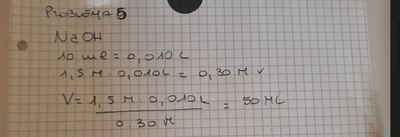 PROBLEMA 5
NaOH
10 ml = 0,010 L
1,5 M . 0,010L = 0,30 M v
V = 1,5 M . 0,010L = 50 ML
0.30 M